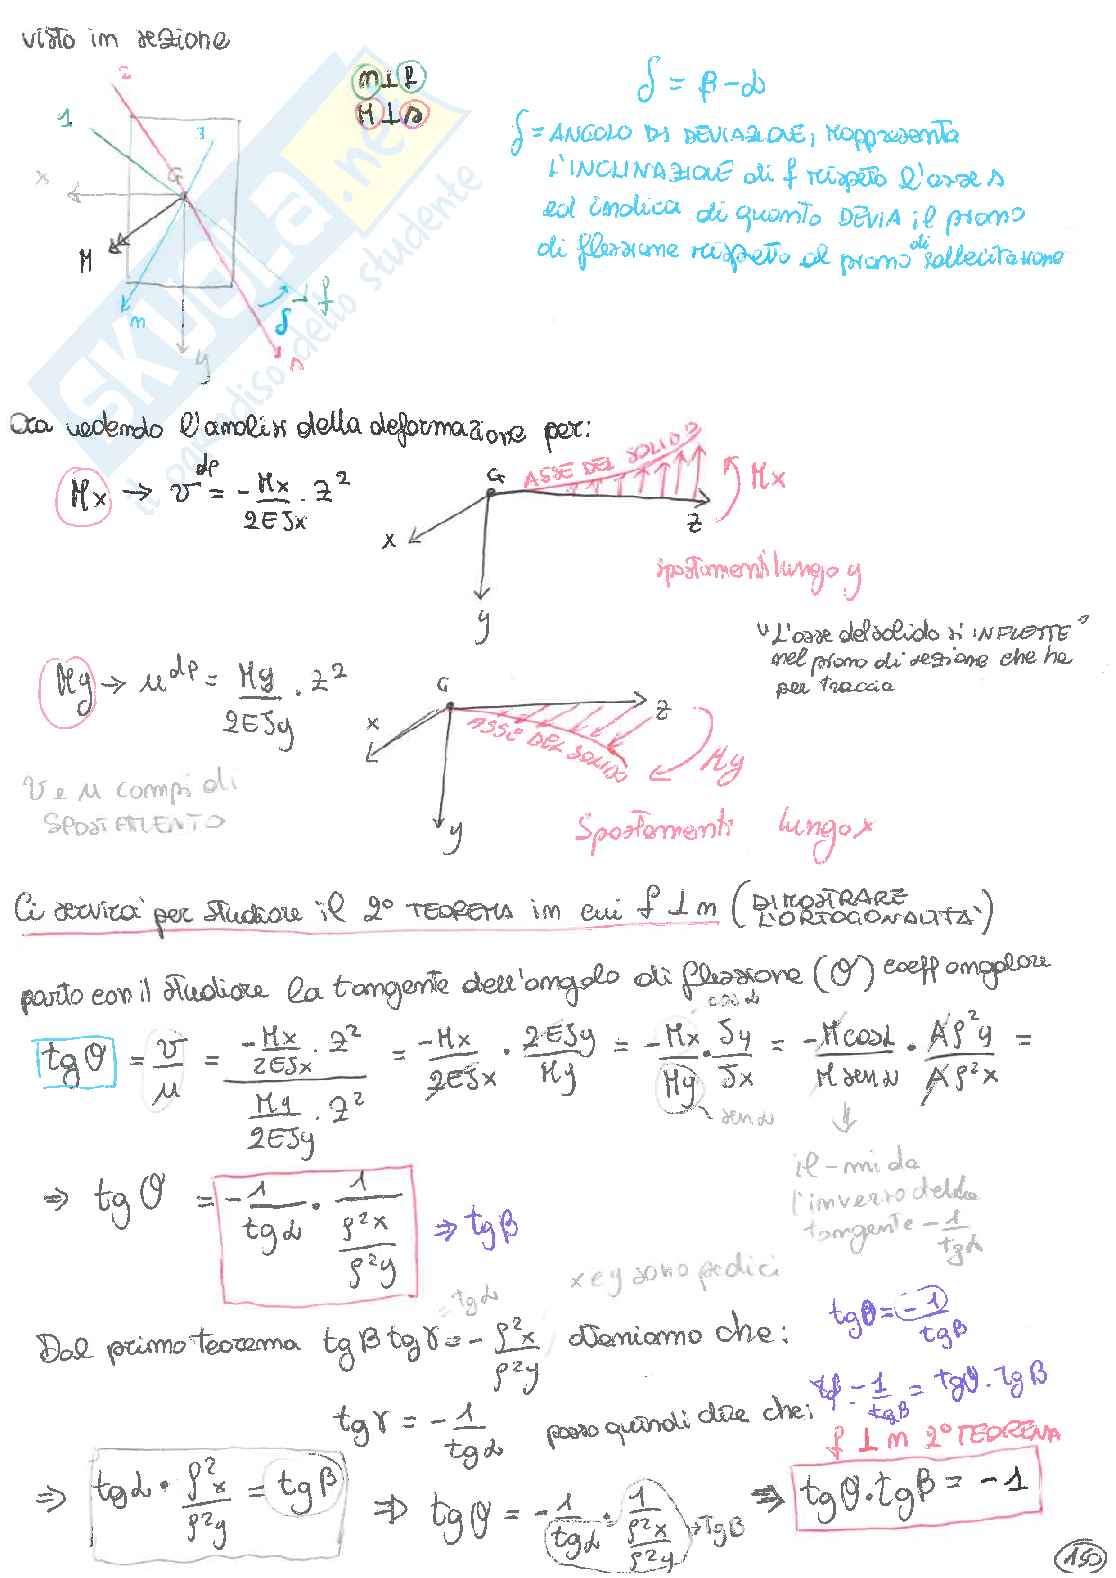 visto in sezione
2
1
3
x
G
M
n
y
δ
f
s
n⊥f
M⊥s
δ = β-α
δ = ANGOLO DI DEVIAZIONE, rappresenta
L'INCLINAZIONE di f rispeto l'asse s
ed indica di quanto DEVIA il piano
di flessione rispeto al piano di sollecitazione
Ora vedendo l'analisi della deformazione per:
Mx → v^dp = -Mx/2EJx · z²
G
ASSE DEL SOLIDO
Mx
x
z
y
spostamenti lungo y
"L'asse del solido si INFLETTE"
nel piano di sezione che ha
per traccia
My → u^dp = My/2EJy · z²
G
x
z
ASSE DEL SOLIDO
My
y
v e u campi di
SPOSTAMENTO
Spostamenti lungo x
Ci servirà per studiare il 2° TEOREMA in cui f ⊥ n (DIMOSTRARE L'ORTOGONALITA')
parto con il studiare la tangente dell'angolo di flessione (θ) coeff angolare
tgθ = v/u = (-Mx/2EJx · z²)/(My/2EJy · z²) = -Mx/2EJx · 2EJy/My = -Mx/My · Jy/Jx = -Mcosα/Msenα · Aρ²y/Aρ²x =
cosα
senα
il - mi da
l'inverso della
tangente -1/tgα
⇒ tgθ = -1/tgα · 1/(ρ²x/ρ²y) ⇒ tgβ
x e y sono pedici
= tgα
Dal primo teorema tgβ tgγ = -ρ²x/ρ²y otteniamo che:
tgθ = -1/tgβ
tgγ = -1/tgα posso quindi dire che:
-1/tgβ = tgθ · tgβ
f ⊥ n 2° TEOREMA
⇒ tgα · ρ²x/ρ²y = tgβ ⇒ tgθ = -1/tgα · 1/(ρ²x/ρ²y) → tgβ ⇒ tgθ · tgβ = -1
150
SKUOLA.net
il paradiso dello studente